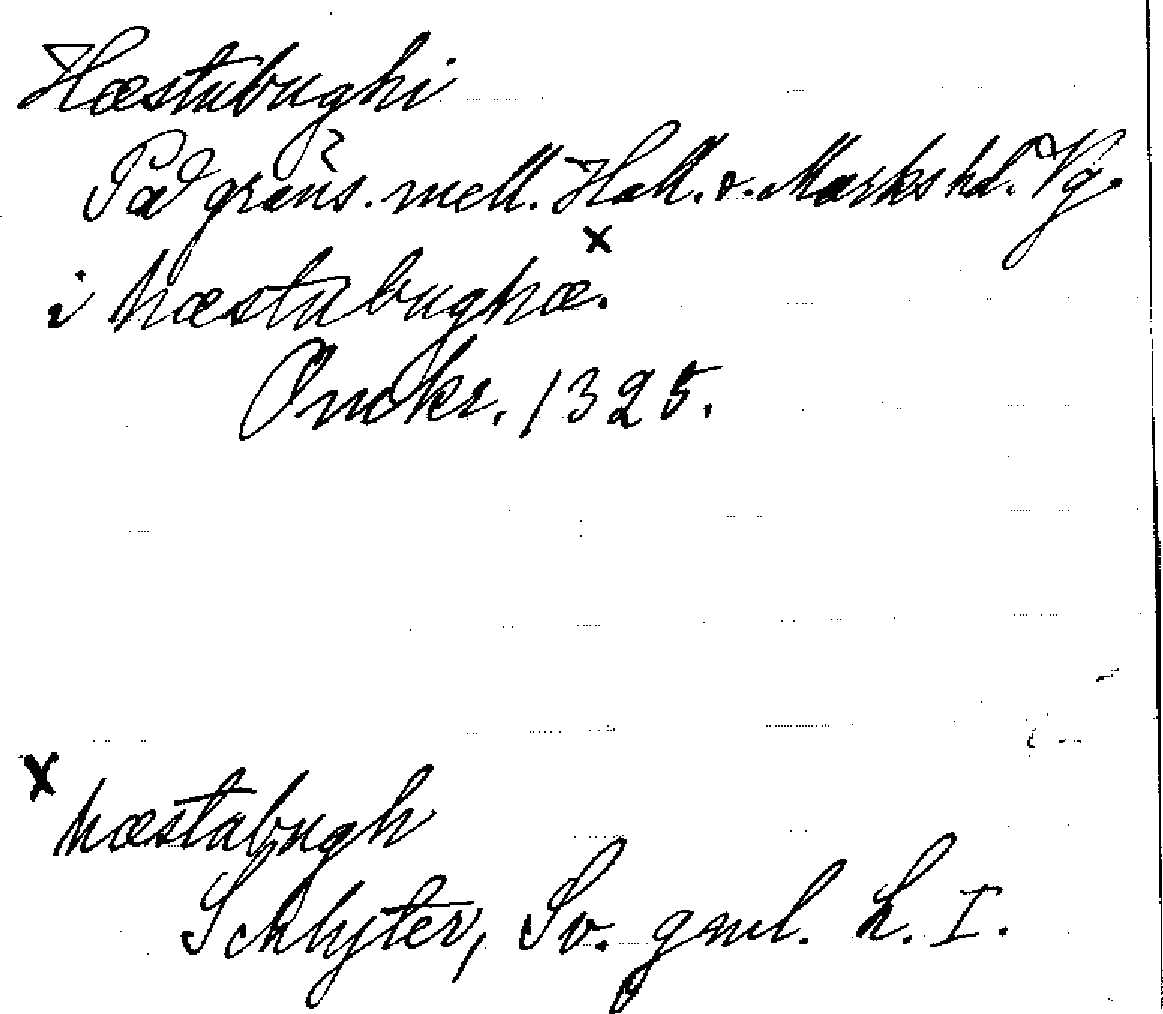 Hæstabughi
På gräns. mell. Hall. o. Marks hd. Vg.
i hæstabughæ. x
1325.
x hæstabugh
Schlyter, Sv. gml. L. I.